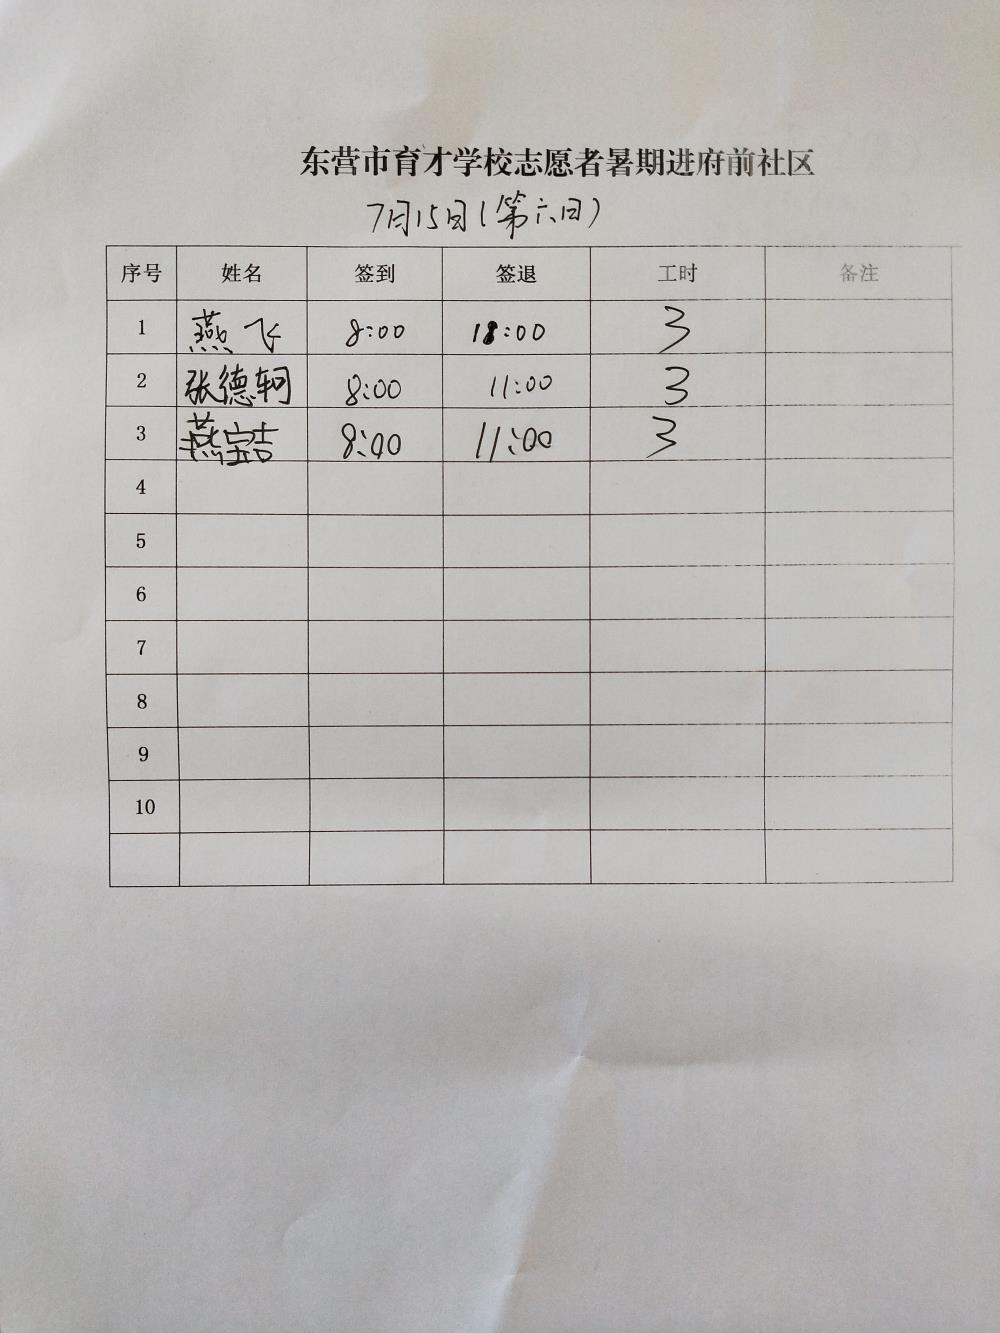 东营市育才学校志愿者暑期进府前社区
7月15日(第六日)
序号 姓名 签到 签退 工时 备注
1 燕飞 8:00 18:00 3
2 张德轲 8:00 11:00 3
3 燕宝吉 8:00 11:00 3
4
5
6
7
8
9
10